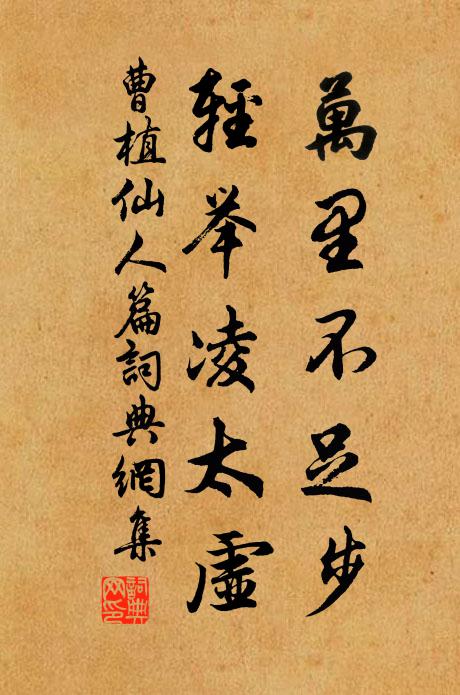 萬里不足步
輕举凌太虛
曹植仙人篇詞典網集
詞典網印